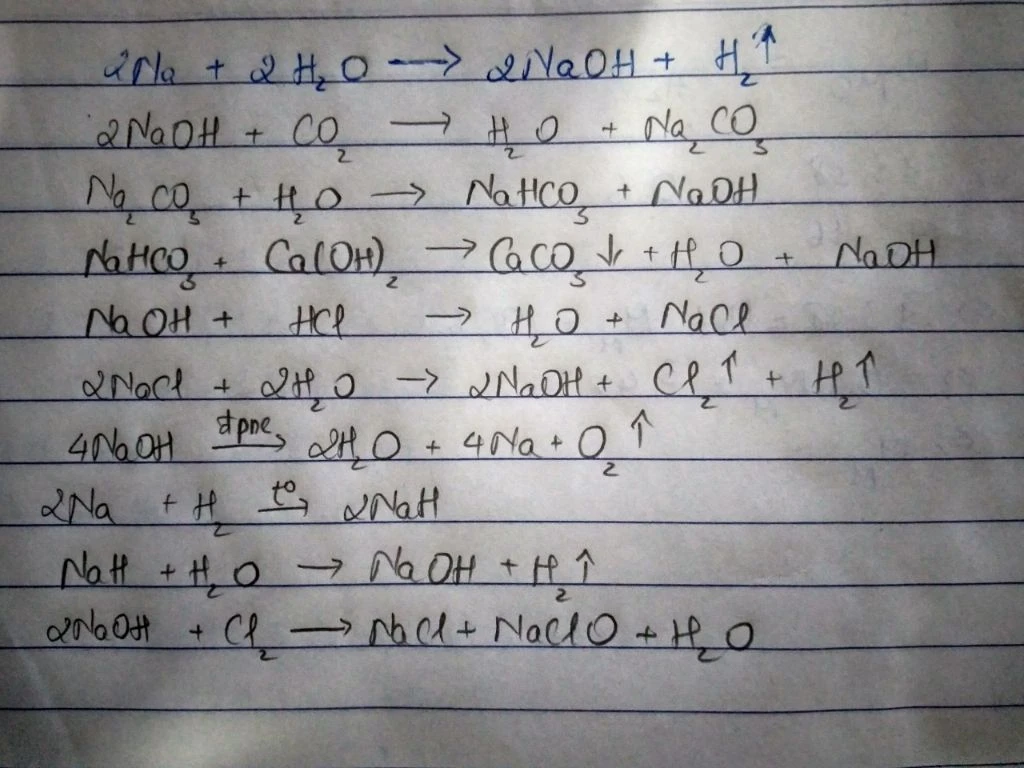 2Na + 2H₂O → 2NaOH + H₂↑
2NaOH + CO₂ → H₂O + Na₂CO₃
Na₂CO₃ + H₂O → NaHCO₃ + NaOH
NaHCO₃ + Ca(OH)₂ → CaCO₃↓ + H₂O + NaOH
NaOH + HCl → H₂O + NaCl
2NaCl + 2H₂O → 2NaOH + Cl₂↑ + H₂↑
4NaOH → 2H₂O + 4Na + O₂↑
2Na + H₂ t⁰→ 2NaH
NaH + H₂O → NaOH + H₂↑
2NaOH + Cl₂ → NaCl + NaClO + H₂O